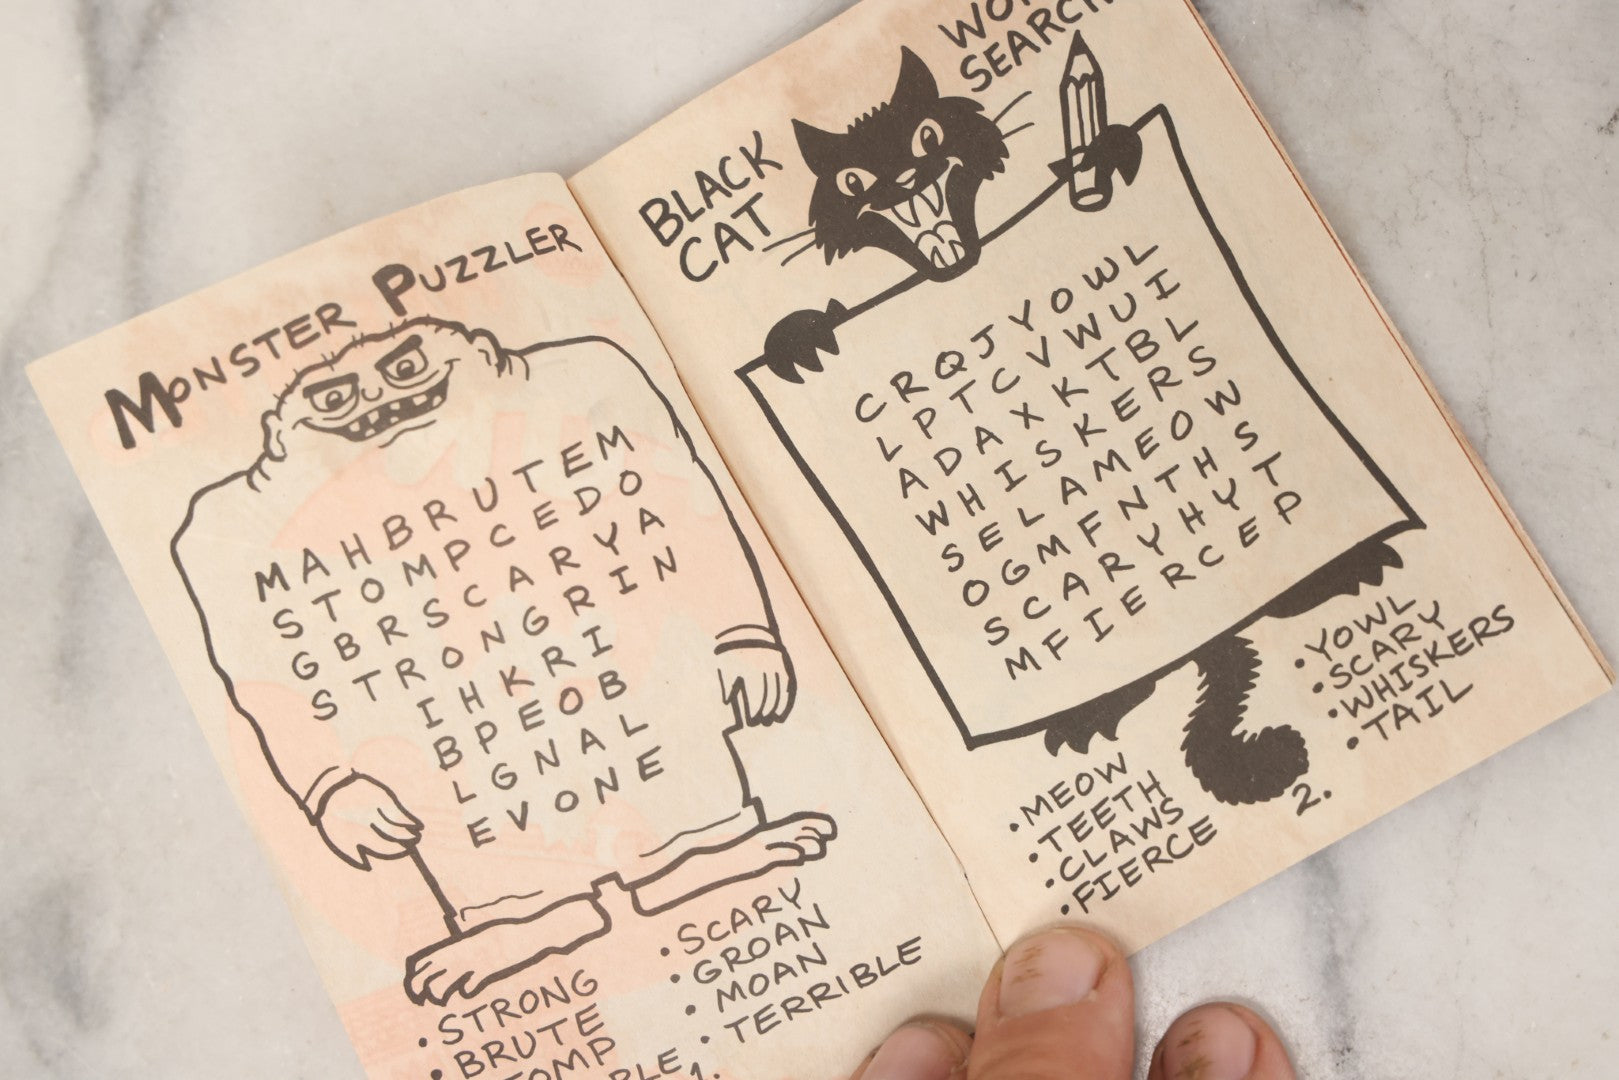 MONSTER PUZZLER
M A H B R U T E M
S T O M P C E D O
G B R S C A R Y A
S T R O N G R I N
I H K R I
B P E O B
L G N A L
E V O N E
• STRONG
• BRUTE
• SCARY
• GROAN
• MOAN
• TERRIBLE
1.
BLACK
CAT
SEARCH
C R Q J Y O W L
L P T C V W U I
A D A X K T B L
W H I S K E R S
S E L A M E O W
O G M F N T H S
S C A R Y H Y T
M F I E R C E P
• MEOW
• TEETH
• CLAWS
• FIERCE
• YOWL
• SCARY
• WHISKERS
• TAIL
2.